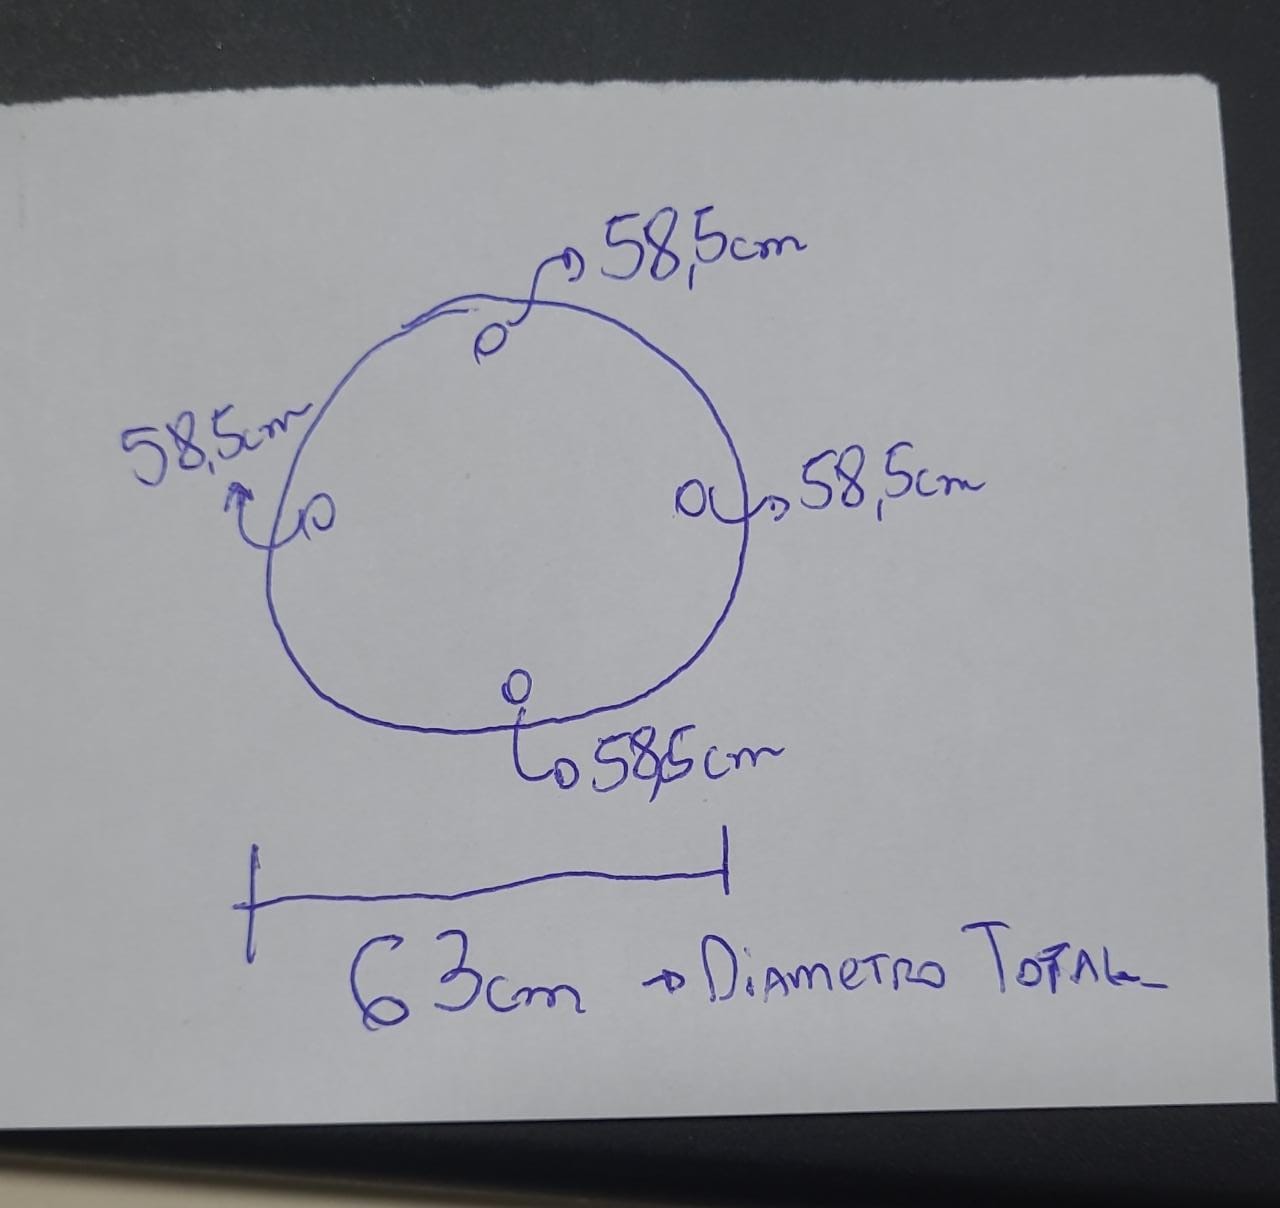 58,5cm
58,5cm
58,5cm
58,5cm
63cm → DiAMETRO TOTAL